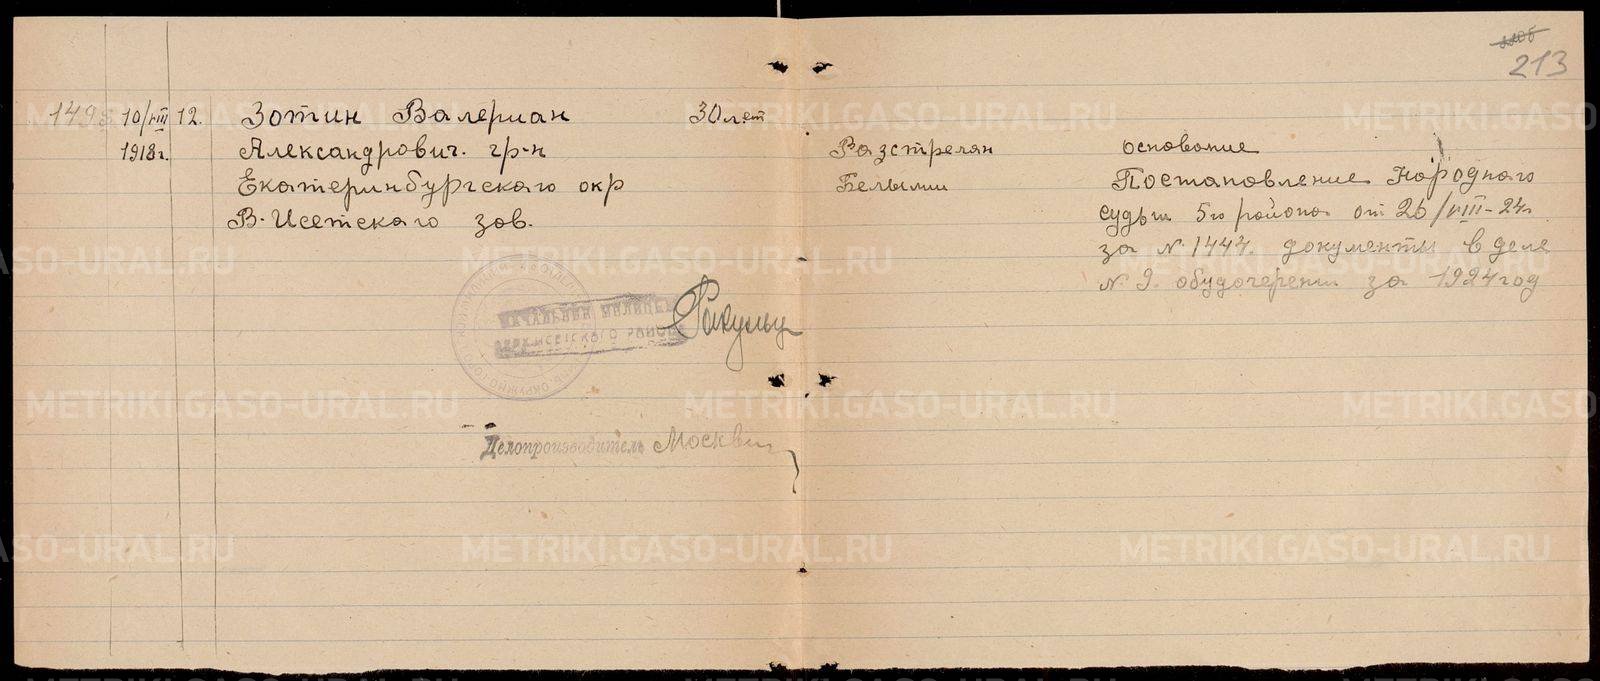 213
10/VIII 12. Зотин Валериан 30 лет
1918 г. Александрович. гр-н Разстрелян основание
Екатеринбургскаго окр Белыми Постановление Народнаго
В-Исетскаго зав. судьи 5го района от 26/VIII-24г
за № 1447. документы в деле
№ 9. обудочерении за 1924 год
НАЧАЛЬНИК МИЛИЦИИ
ВЕРХИСЕТСКАГО РАЙОНА
Делопроизводитель Москвин
METRIKI.GASO-URAL.RU